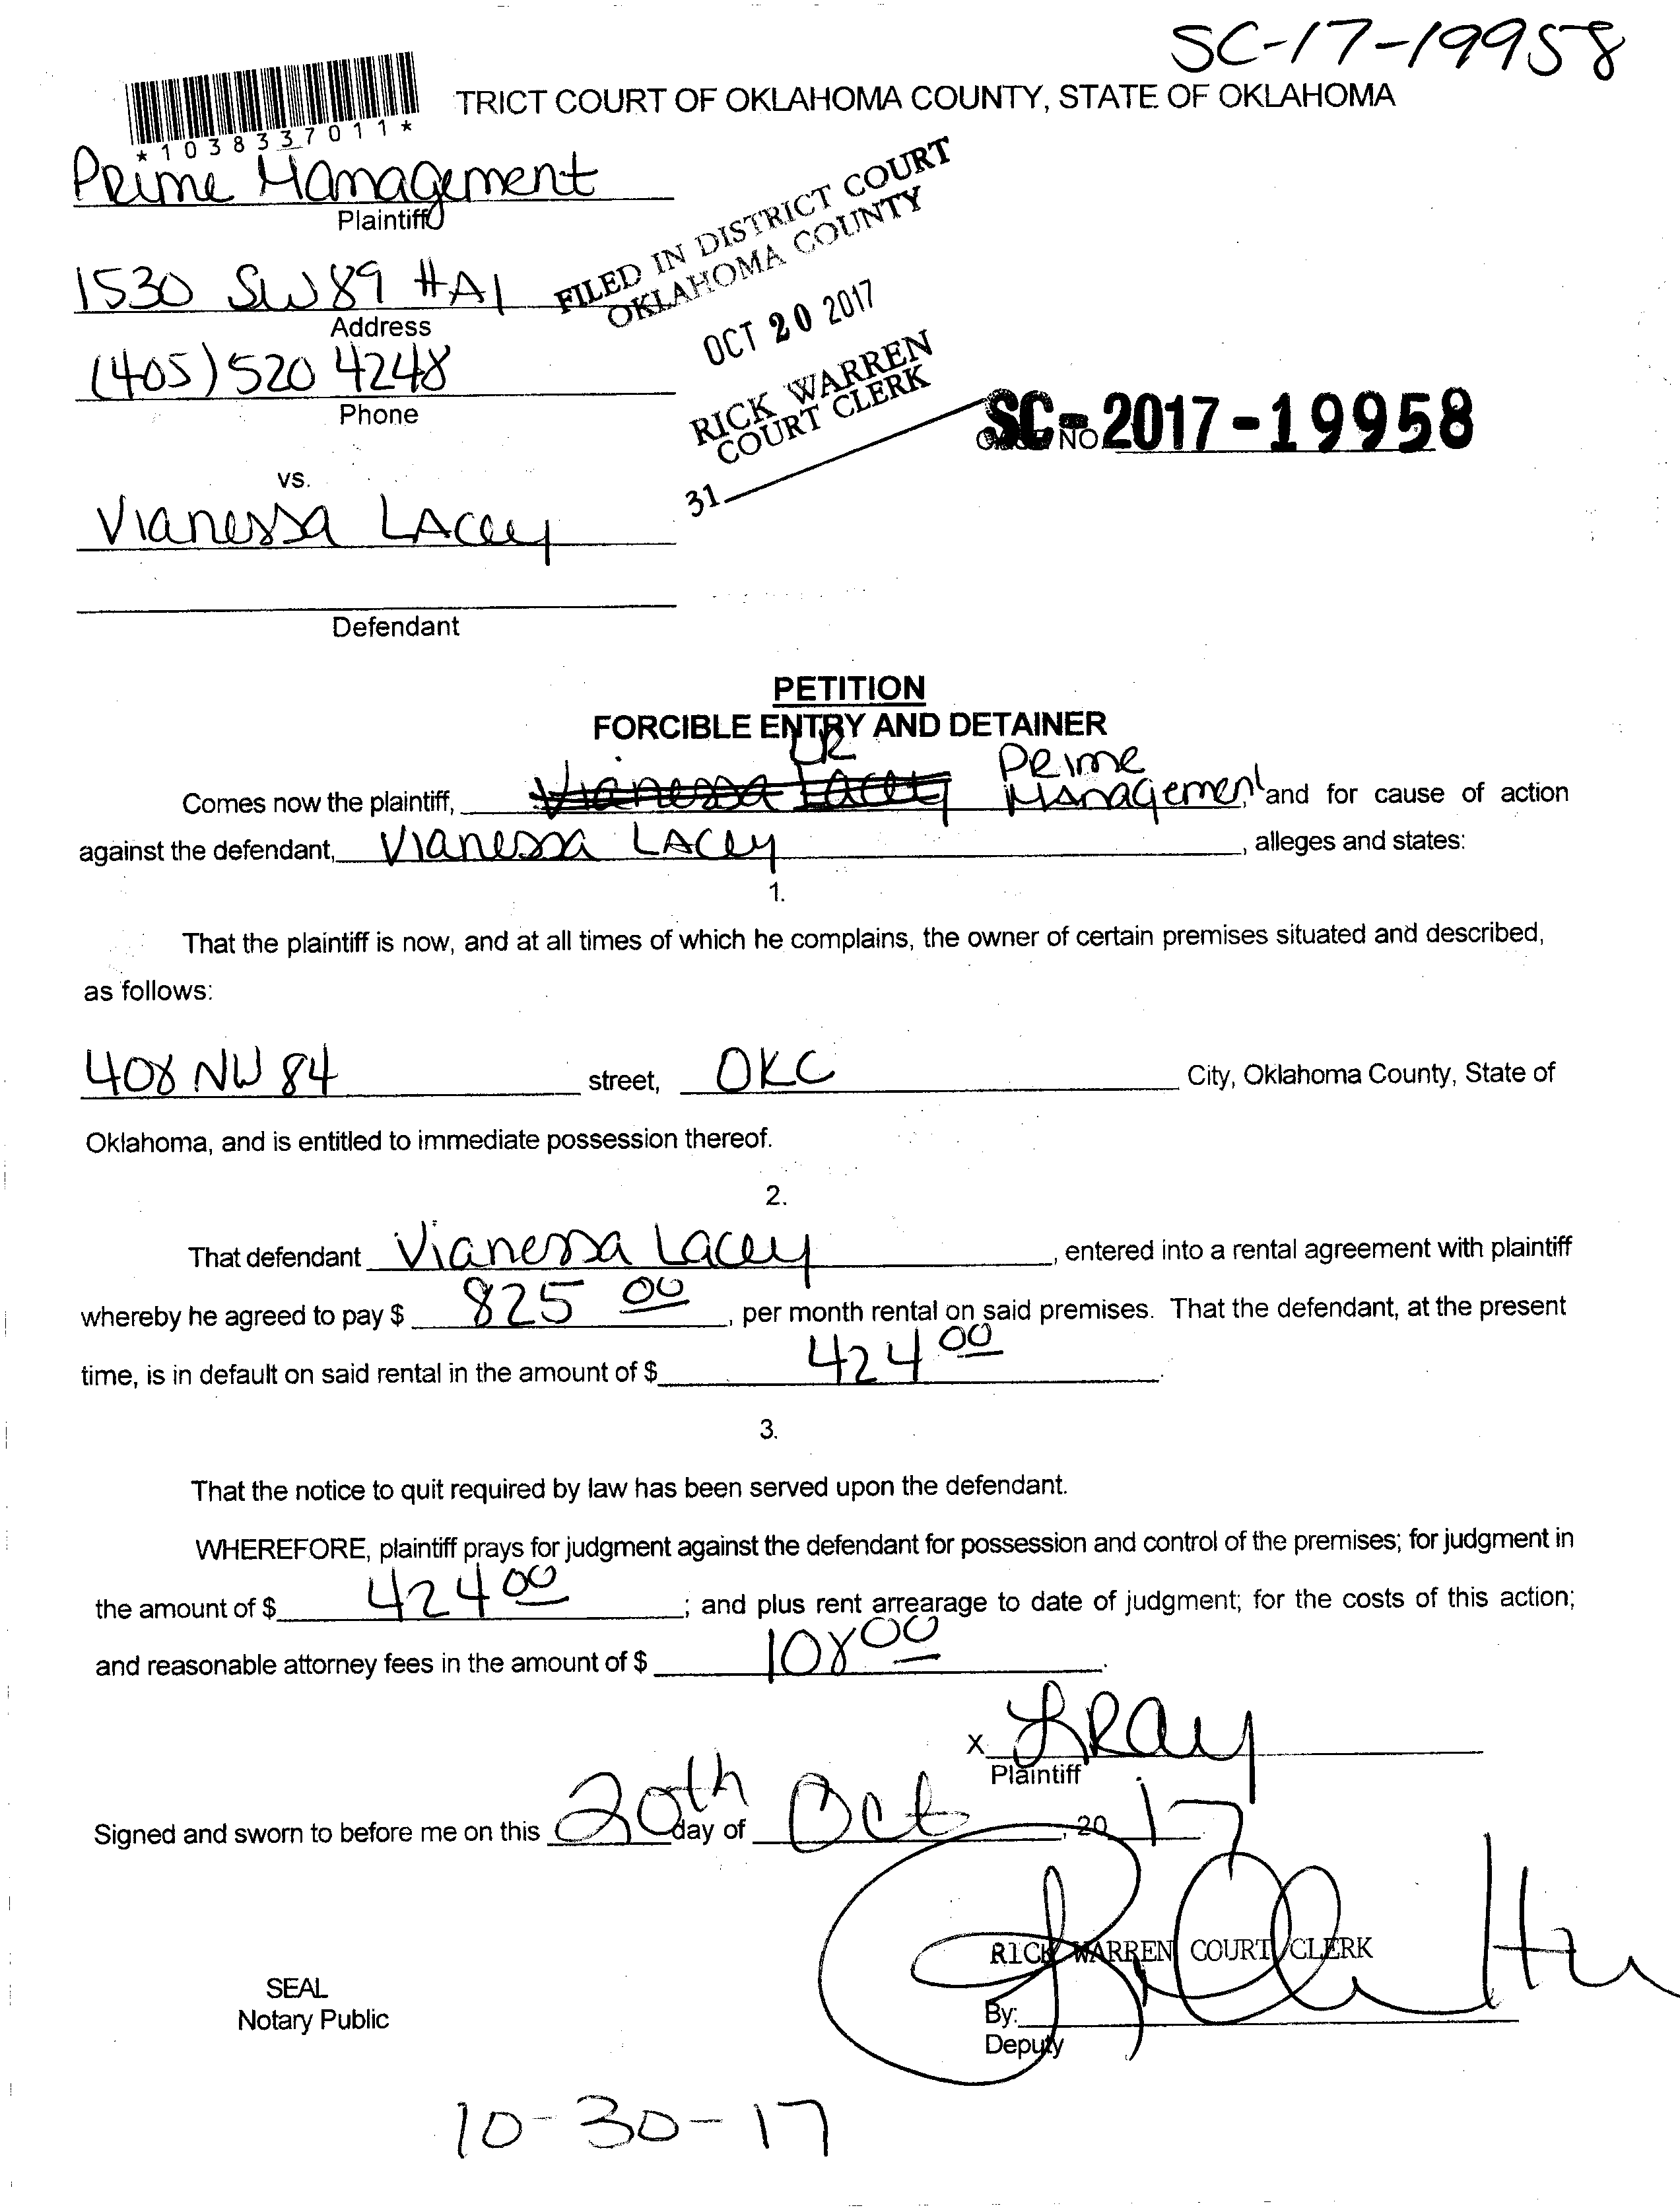 SC-17-19958
TRICT COURT OF OKLAHOMA COUNTY, STATE OF OKLAHOMA
*1038337011*
Prime Management
Plaintiff
1530 SW 89 #A1
Address
(405) 520 4248
Phone
FILED IN DISTRICT COURT
OKLAHOMA COUNTY
OCT 20 2017
RICK WARREN
COURT CLERK
31
SC-2017-19958
NO.
vs.
Vianessa Lacey
Defendant
PETITION
FORCIBLE ENTRY AND DETAINER
LR
Comes now the plaintiff, Vianessa Lacey Prime Management, and for cause of action
against the defendant, Vianessa Lacey, alleges and states:
1.
That the plaintiff is now, and at all times of which he complains, the owner of certain premises situated and described,
as follows:
408 NW 84 street, OKC City, Oklahoma County, State of
Oklahoma, and is entitled to immediate possession thereof.
2.
That defendant Vianessa Lacey, entered into a rental agreement with plaintiff
whereby he agreed to pay $ 825 00, per month rental on said premises. That the defendant, at the present
time, is in default on said rental in the amount of $ 424 00.
3.
That the notice to quit required by law has been served upon the defendant.
WHEREFORE, plaintiff prays for judgment against the defendant for possession and control of the premises; for judgment in
the amount of $ 424 00; and plus rent arrearage to date of judgment; for the costs of this action;
and reasonable attorney fees in the amount of $ 108 00.
X LRay
Plaintiff
Signed and sworn to before me on this 20th day of Oct, 20 17
RICK WARREN COURT CLERK
SEAL
Notary Public
By:
Deputy
10-30-17